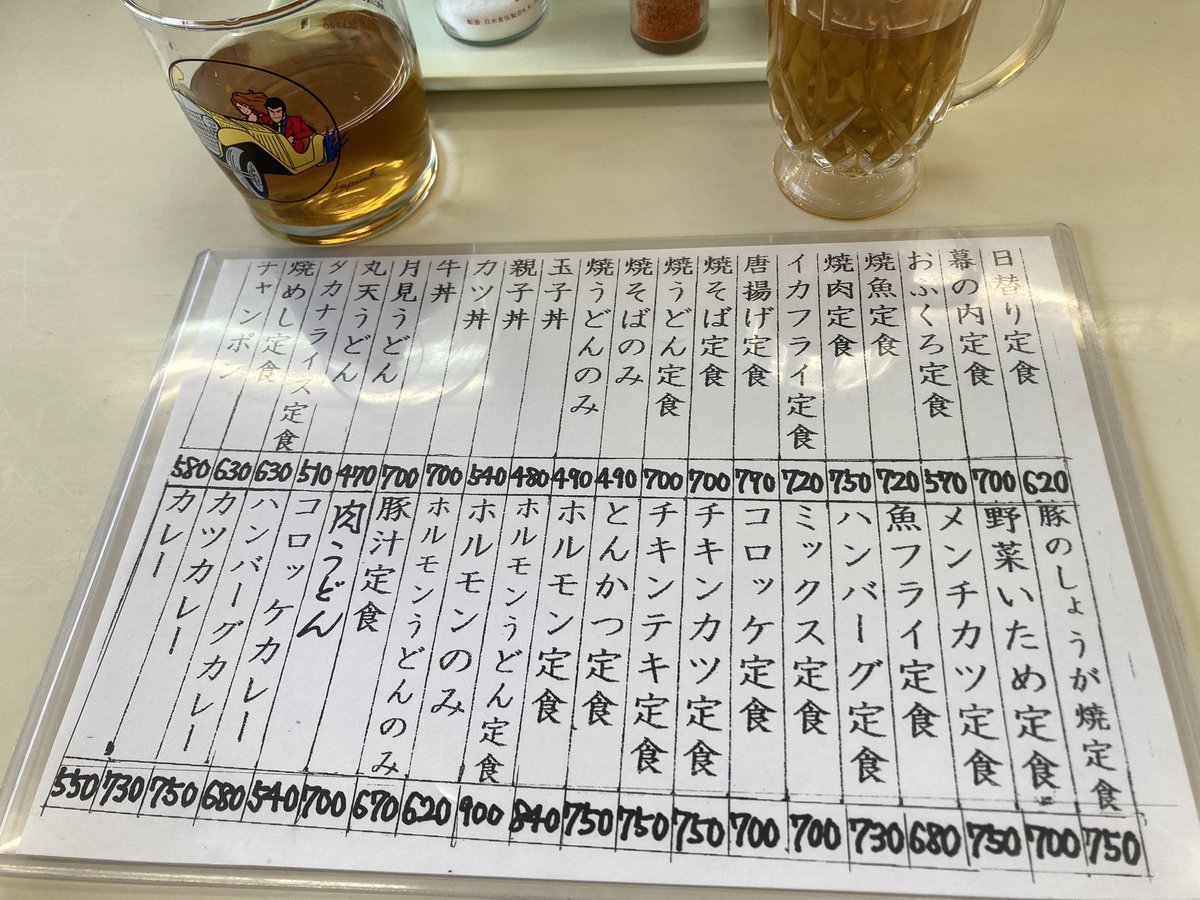 日替り定食 620
幕の内定食 700
おふくろ定食 570
焼魚定食 720
焼肉定食 750
イカフライ定食 720
唐揚げ定食 790
焼そば定食 700
焼うどん定食 700
焼そばのみ 490
焼うどんのみ 490
玉子丼 480
親子丼 540
カツ丼 700
牛丼 700
月見うどん 470
丸天うどん 510
タカナライス定食 630
焼めし定食 630
チャンポン 580
豚のしょうが焼定食 750
野菜いため定食 700
メンチカツ定食 750
魚フライ定食 680
ハンバーグ定食 730
ミックス定食 700
コロッケ定食 700
チキンカツ定食 750
チキンテキ定食 750
とんかつ定食 750
ホルモン定食 840
ホルモンうどん定食 900
ホルモンのみ 620
ホルモンうどんのみ 670
豚汁定食 700
肉うどん 540
コロッケカレー 680
ハンバーグカレー 750
カツカレー 730
カレー 550